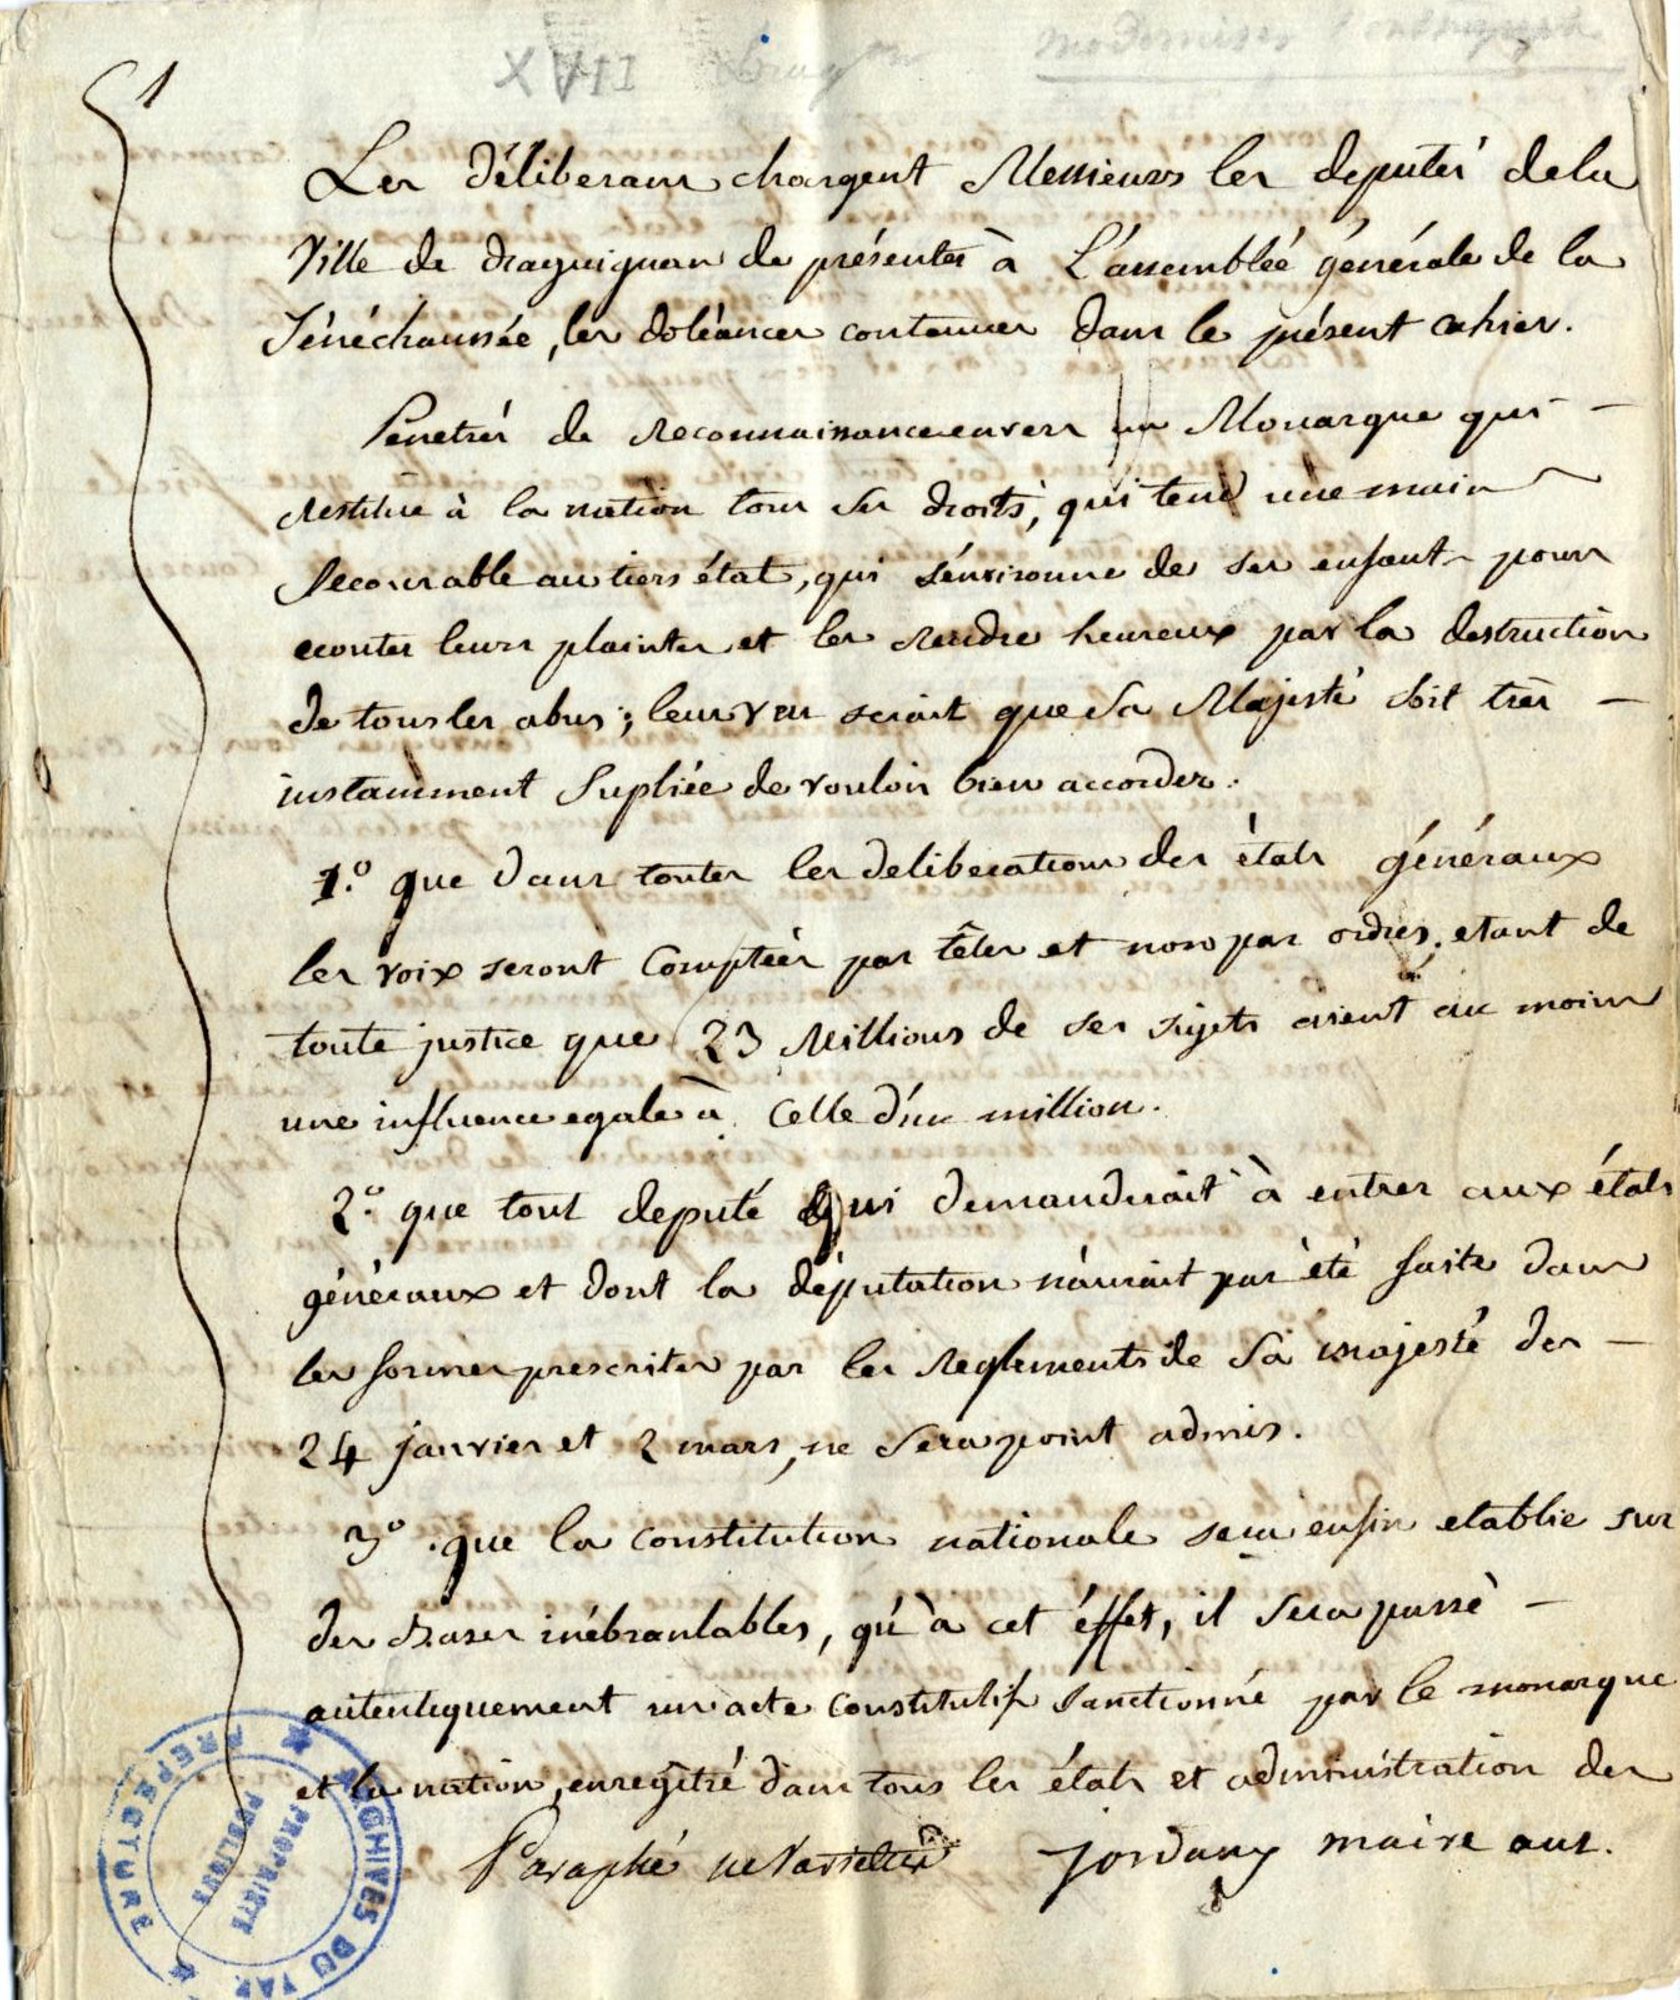 XVII
moderniser l'orthographe
1
Les déliberans chargent Messieurs les deputés dela
Ville de draguignan de présenter à L'assemblée générale de la
Sénéchaussée, les doléances contenues dans le présent cahier.
Penetrés de reconnaissance envers un Monarque qui -
restitue à la nation tous ses droits, qui tend une main
secourable au tiers état, qui s'environne de ses enfants pour
ecouter leurs plaintes et les rendre heureux par la destruction
de tous les abus; leur vœu serait que Sa Majesté soit très -
instamment Supliée de vouloir bien accorder.
1.° que dans toutes les deliberations des états généraux
les voix seront Comptées par têtes et non par ordres, etant de
toute justice que 23 Millions de ses sujets aient au moins
une influence egale à Celle d'un million.
2.° que tout deputé qui demanderait à entrer aux états
généraux et dont la députation n'aurait pas été faite dans
les formes prescrites par les Reglements de Sa majesté des -
24 janvier et 2 mars, ne sera point admis.
3° que la constitution nationale sera enfin etablie sur
des Bases inébranlables, qu'à cet éffet, il sera passé -
autentiquement un acte constitutif sanctionné par le monarque
et la nation, enregitré dans tous les états et administration des
Paraphé ne varietur Jordany maire aut.
ARCHIVES DU VAR
PREFECTURE
PROPRIETE
PUBLIQUE